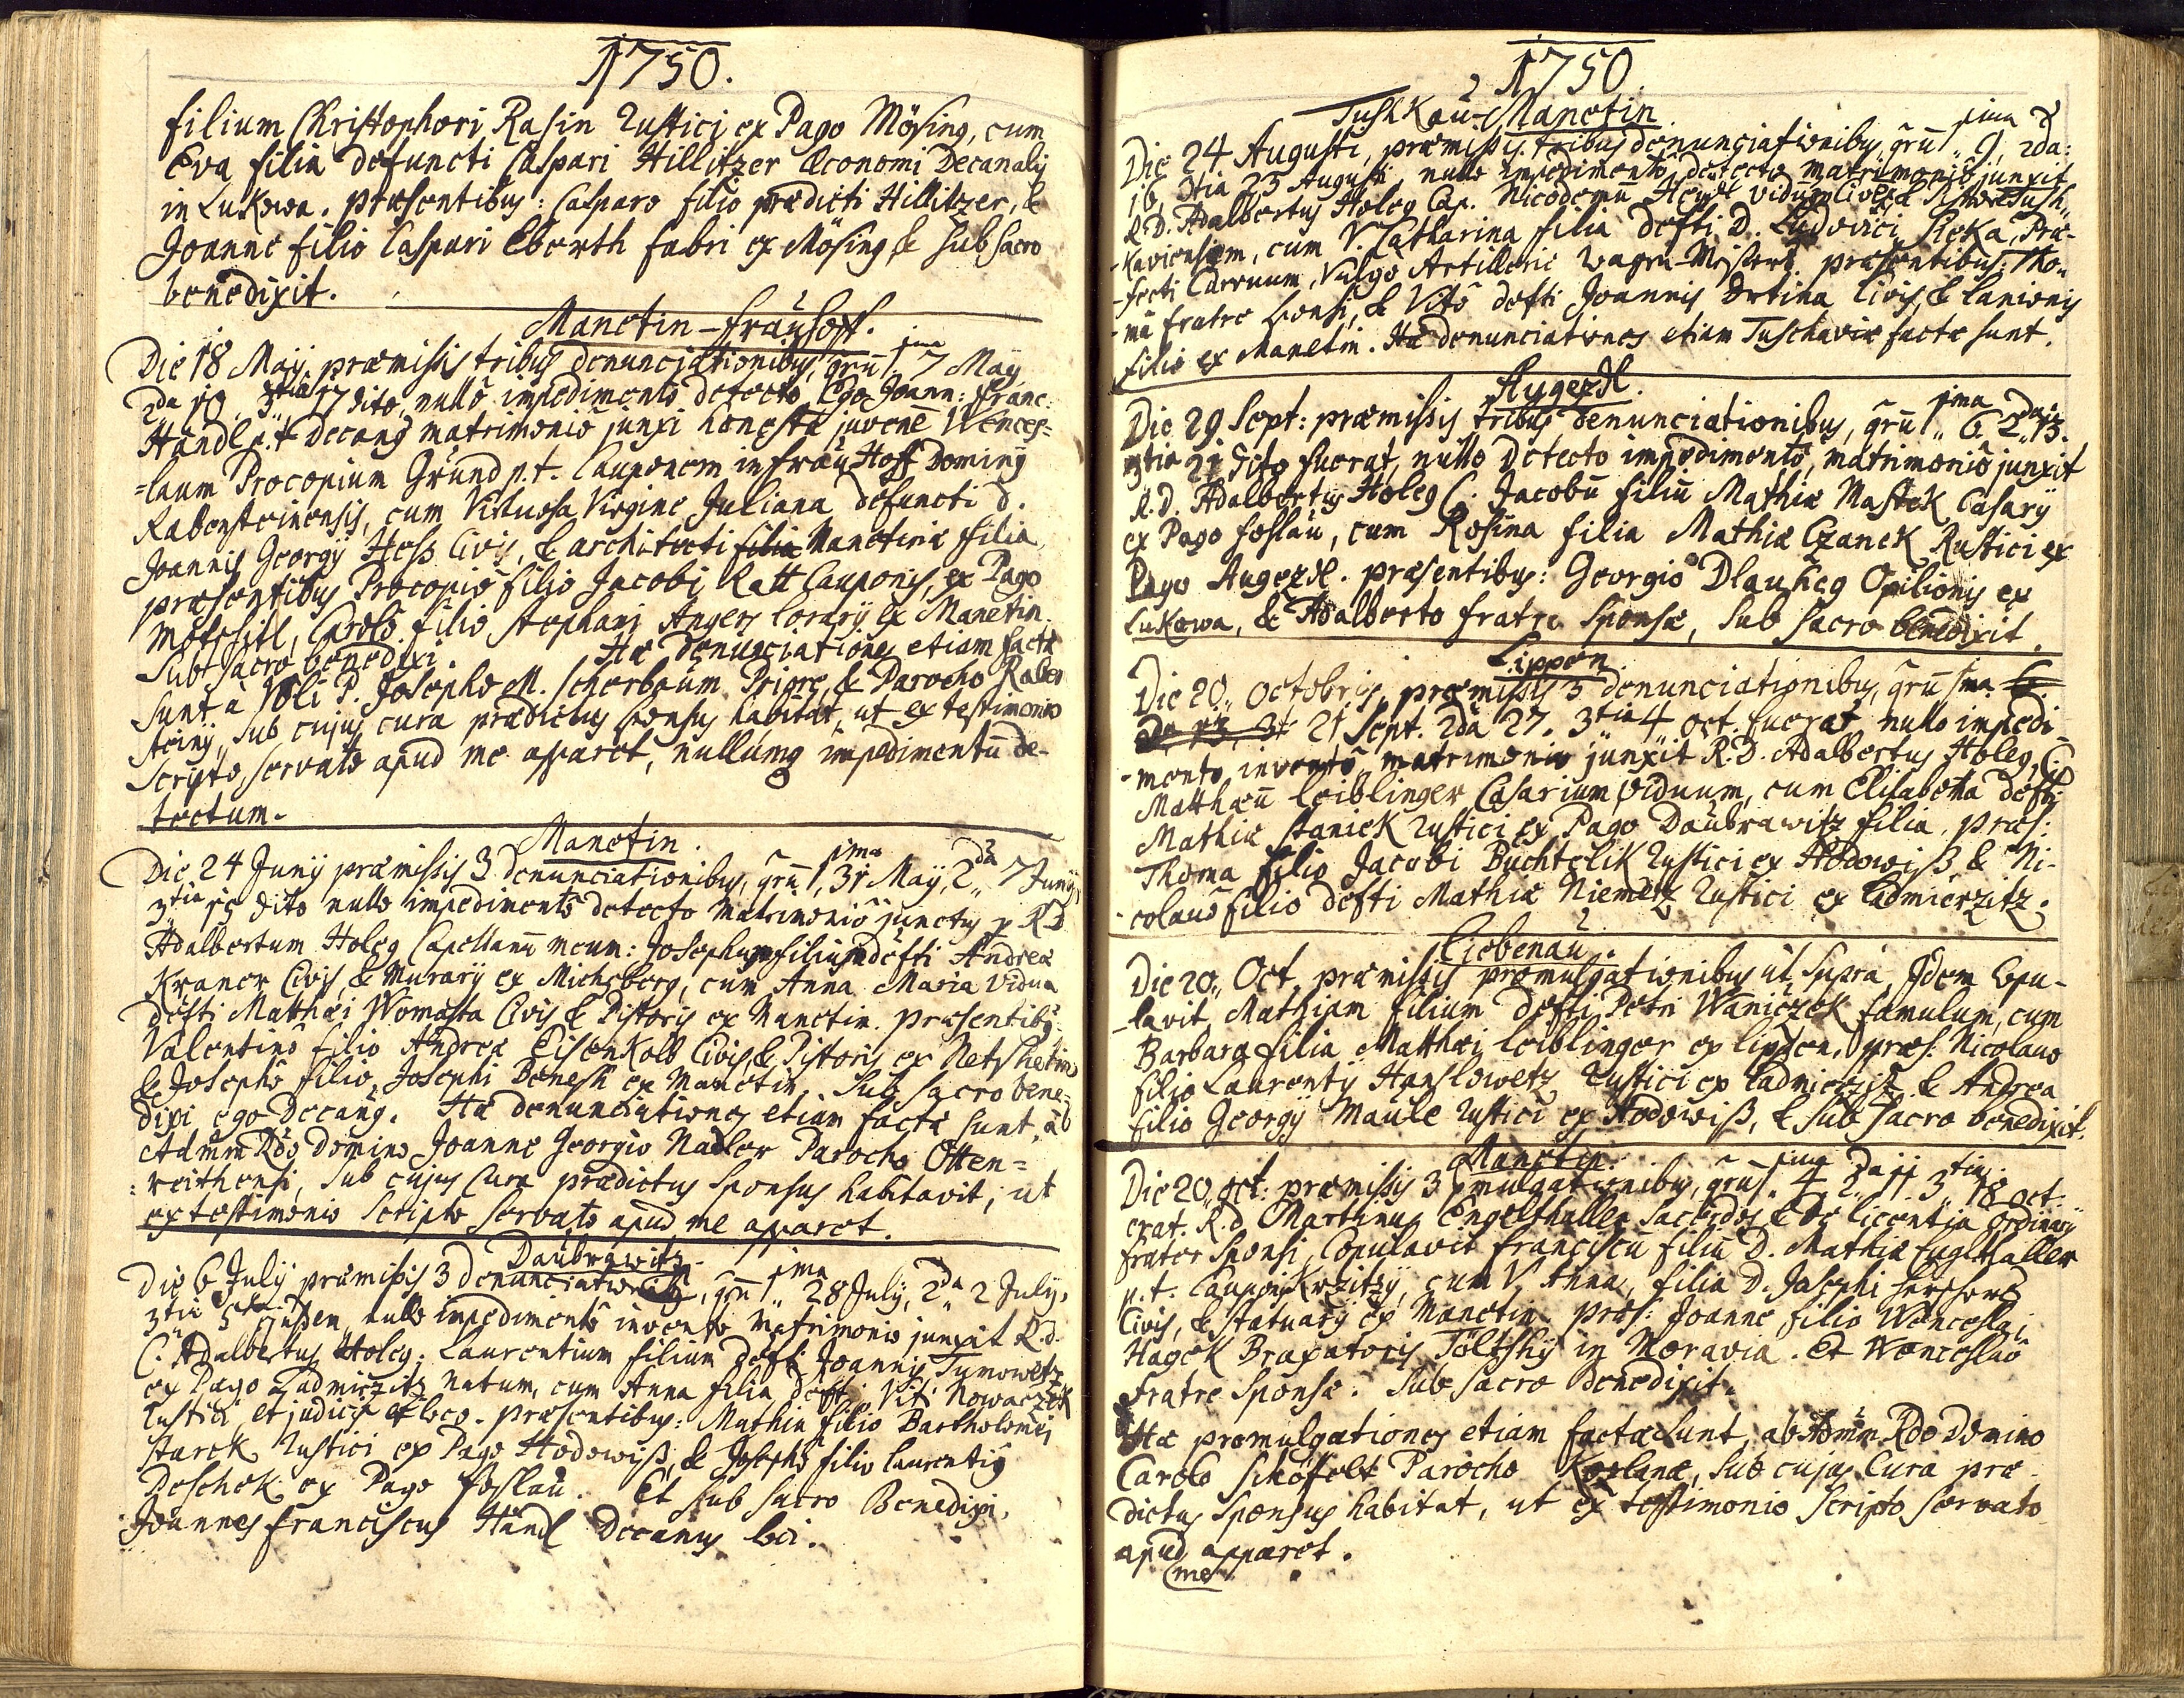 1750.
filium Christophori Rasin Rustici ex Pago Mösing, cum
Eva filia defuncti Caspari Hillitzer Œconomi Decanalis
in Lukowa. præsentibus: Casparo filio prædicti Hillitzer, &
Joanne filio Caspari Eberth fabri ex Mösing & sub sacro
benedixit.
Manetin – fraühoff.
Die 18 Maÿ præmissis tribus denunciationibus, qrũ 1ma 7 Maÿ
2da 10 3tia 17 dito, nullô impedimentô detecto, Ego Joann: Franc:
Händl p.t. Decanus matrimoniô junxi honestũ juvenẽ Wences=
=laum Procopium Gründ p.t. Cauponem in fraü Hoff Dominÿ
Rabensteinensis, cum Virtuosa Virgine Juliana defuncti D.
Joannis Georgÿ Hess Civis, & architecti filia Manetinæ filia
præsentibus Procopiô filiô Jacobi Ratt Cauponis, ex Pago
Motschitl, Carolô filiô Stephani Angers lorarÿ ex Manetin.
Sub sacro benedixi. Hæ denunciationes etiam factæ
sunt à P. Josepho M. Scherbaum Priore & Parocho Raben
steinÿ, sub cujus cura prædictus sponsus habitat, ut ex testimonio
scripto, servato apud me apparet, nullumq impedimentũ de-
tectum.
Manetin.
Die 24 Junÿ præmissis 3 denunciationibus, qrũ 1ma 31 Maÿ, 2da 7 Junÿ,
3tia 14 dito nullo impedimentô detecto Matrimoniô junctus p R.D.
Adalbertum Holeg Capellanũ meum: Josephum filium defti Andreæ
Kraner Civis, & Murarÿ ex Michsberg, cum Anna Maria Vidua
defti Matthæi Womasta Civis & Pistoris ex Manetin. præsentibus:
Valentinô filiô Andreæ Eisenkolb Civis, & Pistoris ex Netshetin
& Josephô filio Josephi Benesh ex Manetin. Sub sacro bene=
dixi ego Decanus. Hæ denunciationes etiam factæ sunt, ab
Admm Rdo Domino Joanne Georgiô Nadler Parocho Otten=
=reithensi, sub cujus Cura prædictus Sponsus habitavit, ut
ex testimonio scripto servato apud me apparet.
Daubrawitz.
Die 6 Julÿ præmissis 3 denunciationibus, qrũ 1ma 28 Julÿ, 2da 2 Julÿ,
3tia 5ta ejusdem, nullô impedimentô invento Matrimonio junxit R.d.
C. Adalbertus Holeg. Laurentium filium defti Joannis Tumowetz
ex Pago Ladmierzitz natum, cum Anna filia defti Viti Nowaczek
Rustici et judicis ex loco. præsentibus: Mathia filio Bartholomæi
Starck Rustici ex Pago Hodowiß, & Josephô filio Laurentÿ
Deschek ex Pago Foslaü. Et sub sacro Benedixi,
Joannes Franciscus Händl Decanus loci.
1750.
Tushkaü – Manetin.
Die 24 Augusti, præmissis tribus denunciationibus, qrũ 1ma 9, 2da
16, 3tia 23 Augusti, nullo impedimentô detecto matrimoniô junxit
R.D. Adalbertus Holeg Cap. Nicodemũ viduum Civem & Tush-
-kaviensem, cum V. Catharina filia defti D. Ludovici Sieka, Præ-
-fecti Carruum, Vulgo Artillerie Wagen-Meisters. præsentibus Tho-
-mâ fratre sponsi, & Vitô defti Joannis Ortina Civis, & Lanionis
filiô ex Manetin. Hæ denunciationes etiam Tuschaviæ factæ sunt.
Augezdl.
Die 29 Sept: præmissis tribus denunciationibus, qrũ 1ma 6 2da 13.
3tia 21 dito fuerat, nullo detecto impedimentô, matrimoniô junxit
R.D. Adalbertus Holeg C. Jacobũ filiũ Mathiæ Mastek Casarÿ
ex Pago Foslaü, cum Rosina filia Mathiæ Czanek Rustici ex
Pago Augezdl. præsentibus: Georgiô Dlauheg Opilionis ex
Lukowa, & Adalberto fratre Sponsæ, sub sacro benedixit.
Lippen
Die 20. Octobris, præmissis 3 denunciationibus, qrũ 1ma 6.
2da 13. 3t 21 Sept. 2da 27. 3tia 4 oct. fuerat nullo impedi-
-mento inventô matrimonio junxit R.D. Adalbertus Holeg, C.
Matthæũ Leiblinger Casarium viduum, cum Elisabetha defti
Mathiæ Stanick Rustici ex Pago Daübrawitz filia. præs:
Thoma filio Jacobi Buchtelik Rustici ex Hodowiß & Ni-
-colaô filio defti Mathiæ Niemetz Rustici ex Ladmierzitz.
Liebenaü.
Die 20. Oct. præmissis promulgationibus ut supra, Idem Copu-
-lavit Mathiam filium defti Petri Waniczek famulum, cum
Barbara filia Matthæi Leiblinger ex Lippen. præs: Nicolauo
filio Laurentÿ Hanslowetz Rustici ex Ladmierzitz & Andrea
filio Georgÿ Maule Rustici ex Hodowiß, & sub sacro benedixit.
Manetin.
Die 20. oct: præmissis 3 pmulgationibus, qrũ 1ma 4 2da 11 3tia 18 oct.
erat. R.d. Martinus Engelthaller Sacerdos & de licentia Ordinarÿ
frater Sponsi, Copulavit Franciscũ filiũ D. Mathiæ Englthaller
p.t. Cauponis Krzitzÿ, cum V. Anna, filia D. Josephi Herscherd
Civis, & Statuarÿ ex Manetin. præs: Joanne, filio Wenceslai
Hagek Braxatoris Töltshÿ in Moravia. Et Wenceslaô
Fratre Sponsæ. Sub sacro benedixit.
Hæ promulgationes etiam factæ sunt, ab Admm Rdo Domino
Carolo Schöfelt Parocho Kozlanæ, sub cujus Cura præ-
dictus Sponsus habitat, ut ex testimonio scripto servato
apud apparet.
me